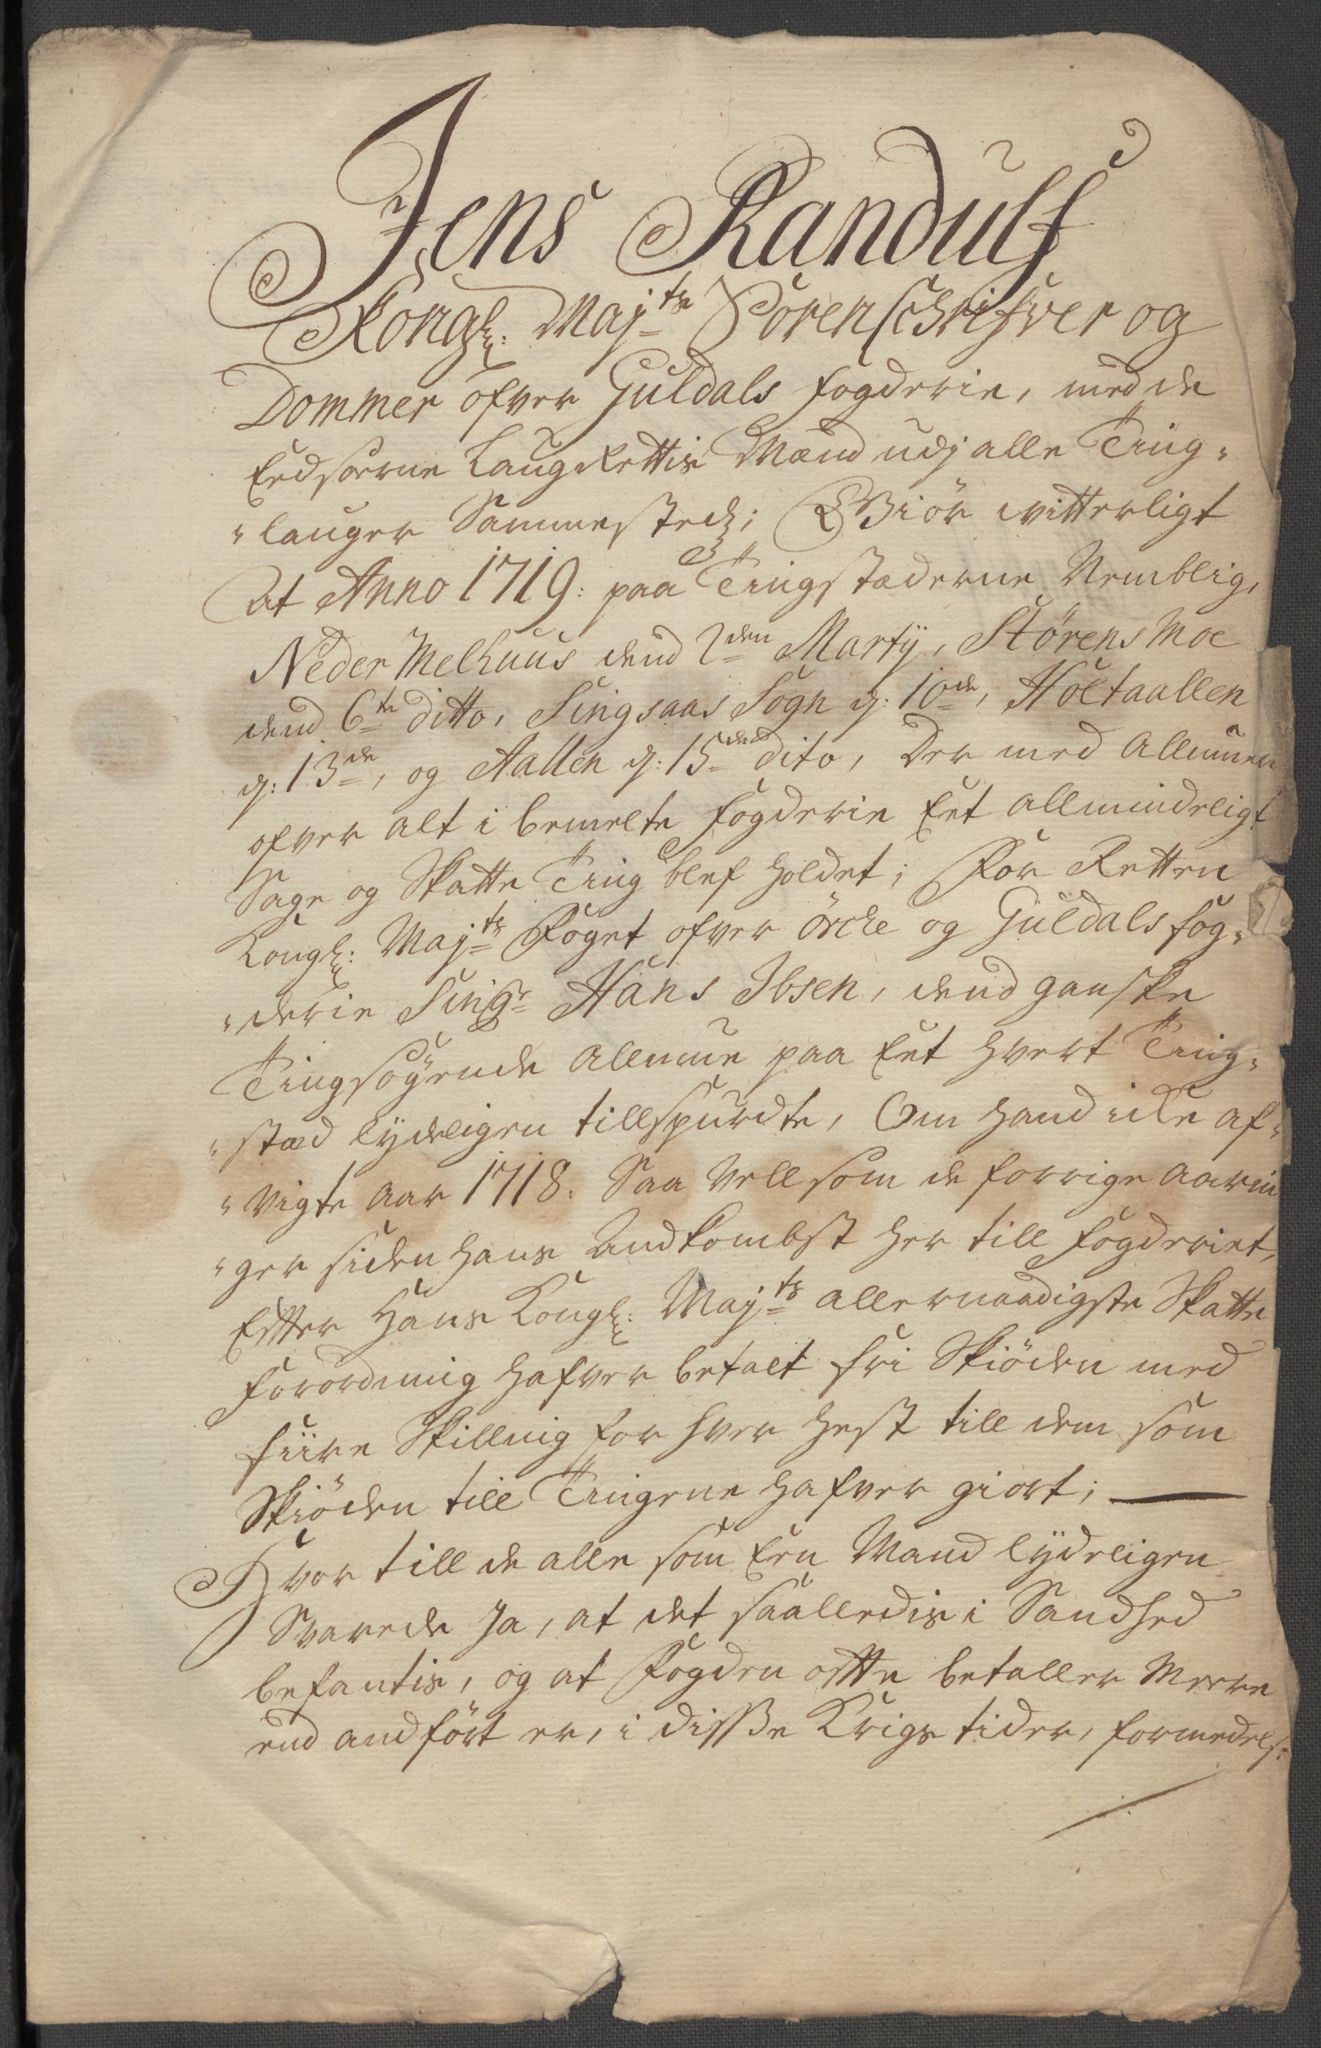 Jens Randulf
Kongl: Maj:ts Sorenschrifver og
Dommer ofver Guldals fogderie, med de
Eedsorne Laug Rettis Mænd udj alle Ting-
lauger Sammestedz; Giör vitterligt
At Anno 1719: paa Tingstæderne Nemblig,
Neder Melhuus dend 2den Martij, Størens Moe
dend 6te ditto, Singsaas Sogn d: 10de, Holtaallen
d: 13de, og Aallen d: 15de dito, Der med Allmuen
ofver alt i bemelte fogderie Eet allmindeligt
Sage og Skatte Ting blef holdet; For Retten
Kongl: Maj:ts Foget ofver Örche og Guldals fog-
derie Sing:r Hans Ibsen, dend gandske
Tingsøgende Allmue paa Eet hvert Ting-
stæd lydeligen tillspurdte, Om hand icke af-
vigte Aar 1718. Saa vell som de forrige Aarin
ger siden hans Andkombst her till fogderiet,
Efter Hans Kongl: Maj:ts allernaadigste Skatte
forordning hafver betalt fri Skiöden med
fiire Skilling for hver Hest till dem som
Skiöden till Tingene hafver giort;
Hvor till de alle som Een Mand lydeligen
Svarede Ja, at det saalledis i Sandhed
befantis, og at Fogden ofte betaller Meere
end andført er, i disse Krigs tider, formedelst